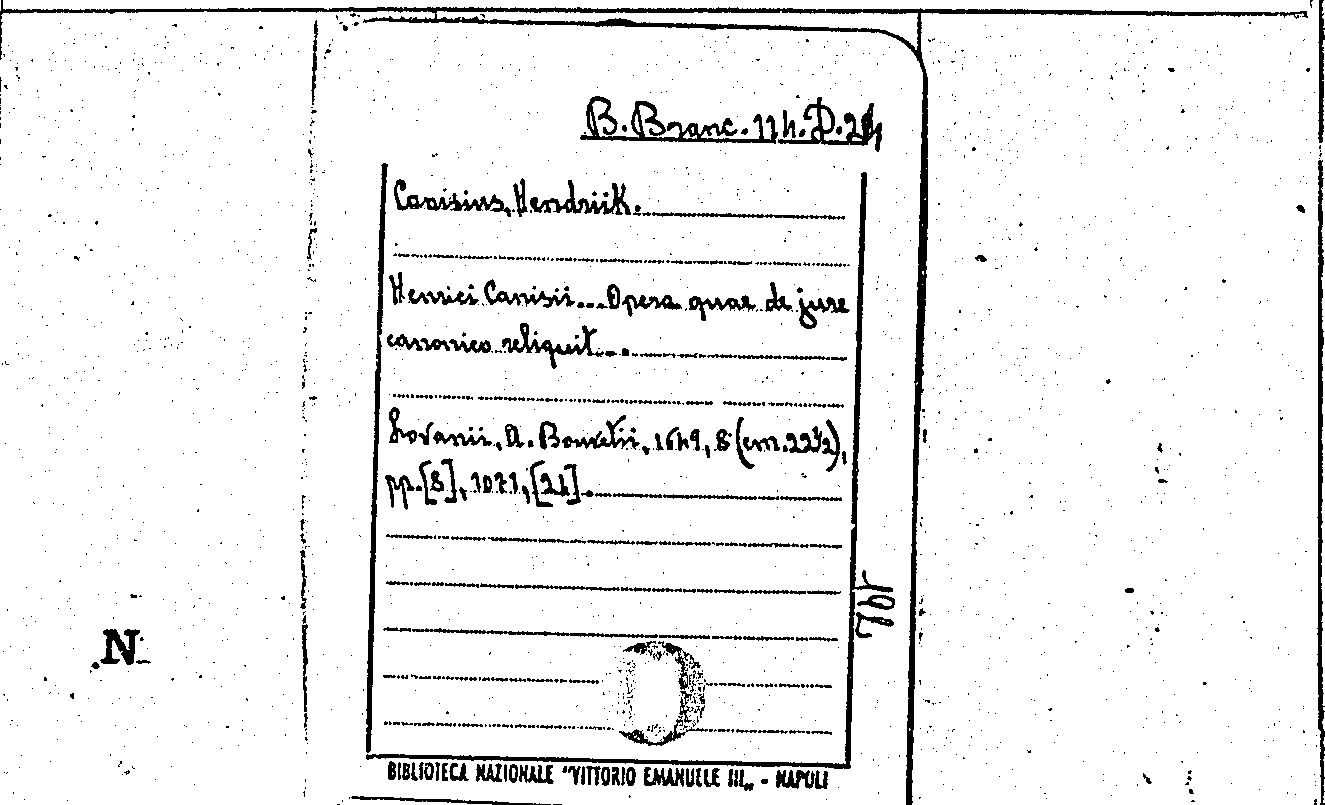 B. Branc. 114. D. 24
Canisius, Hendriik.
Henrici Canisii... Opera quae de jure
canonico reliquit...
Lovanii, A. Bouvetii, 1649, 8 (cm. 22½),
pp. [8], 1071, [24].
N
BIBLIOTECA NAZIONALE "VITTORIO EMANUELE III„ - NAPOLI